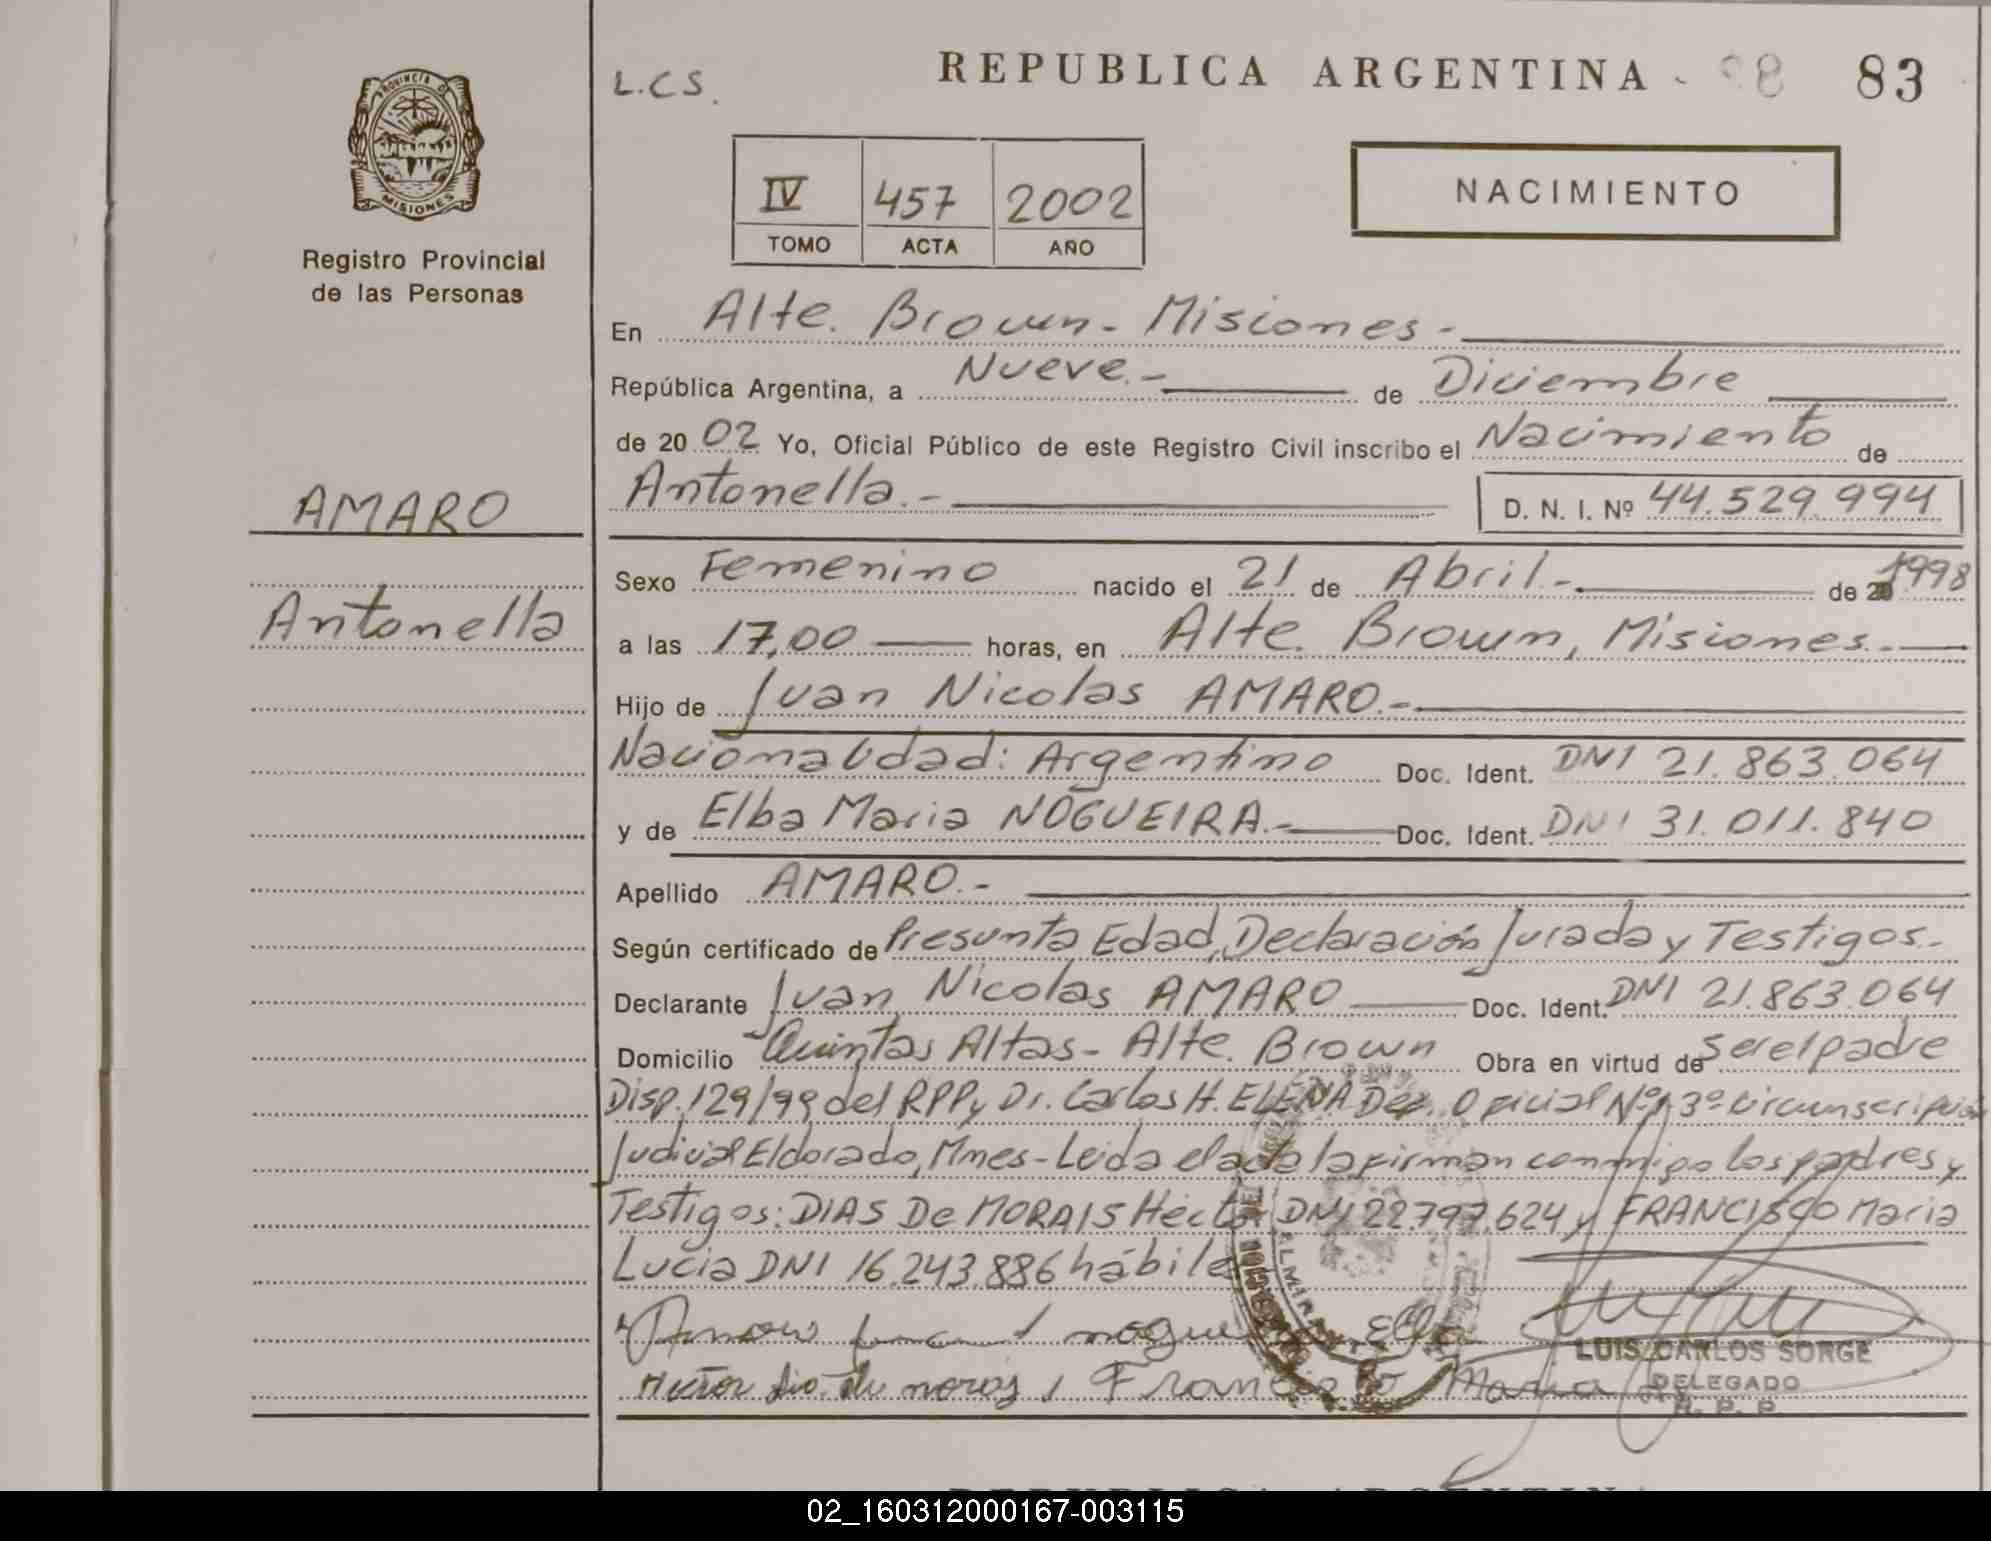 PROVINCIA DE
MISIONES
Registro Provincial
de las Personas
AMARO
Antonella
L.C.S.
REPUBLICA ARGENTINA - 98 83
IV 457 2002
TOMO ACTA AÑO
NACIMIENTO
En Alte. Brown - Misiones -
República Argentina, a Nueve.- de Diciembre
de 20 02 Yo, Oficial Público de este Registro Civil inscribo el Nacimiento de
Antonella.- D. N. I. Nº 44.529.994
Sexo Femenino nacido el 21 de Abril.- de 1998
a las 17,00 horas, en Alte. Brown, Misiones.-
Hijo de Juan Nicolas AMARO.-
Nacionalidad: Argentino Doc. Ident. DNI 21.863.064
y de Elba Maria NOGUEIRA.- Doc. Ident. DNI 31.011.840
Apellido AMARO.-
Según certificado de Presunta Edad, Declaración Jurada y Testigos.-
Declarante Juan Nicolas AMARO Doc. Ident. DNI 21.863.064
Domicilio Quintas Altas - Alte. Brown Obra en virtud de ser el padre
Disp. 129/99 del RPP y Dr. Carlos H. ELENA Def. Oficial Nº 1 3º circunscripción
Judicial Eldorado, Mnes - Leída el acta la firman conmigo los padres y
Testigos: DIAS De MORAIS Hector DNI 22.797.624 y FRANCISCO Maria
Lucia DNI 16.243.886 hábiles
Hector de moras, Francisco Maria
LUIS CARLOS SORGE
DELEGADO
R. P. P.
REPUBLICA ARGENTINA
02_160312000167-003115